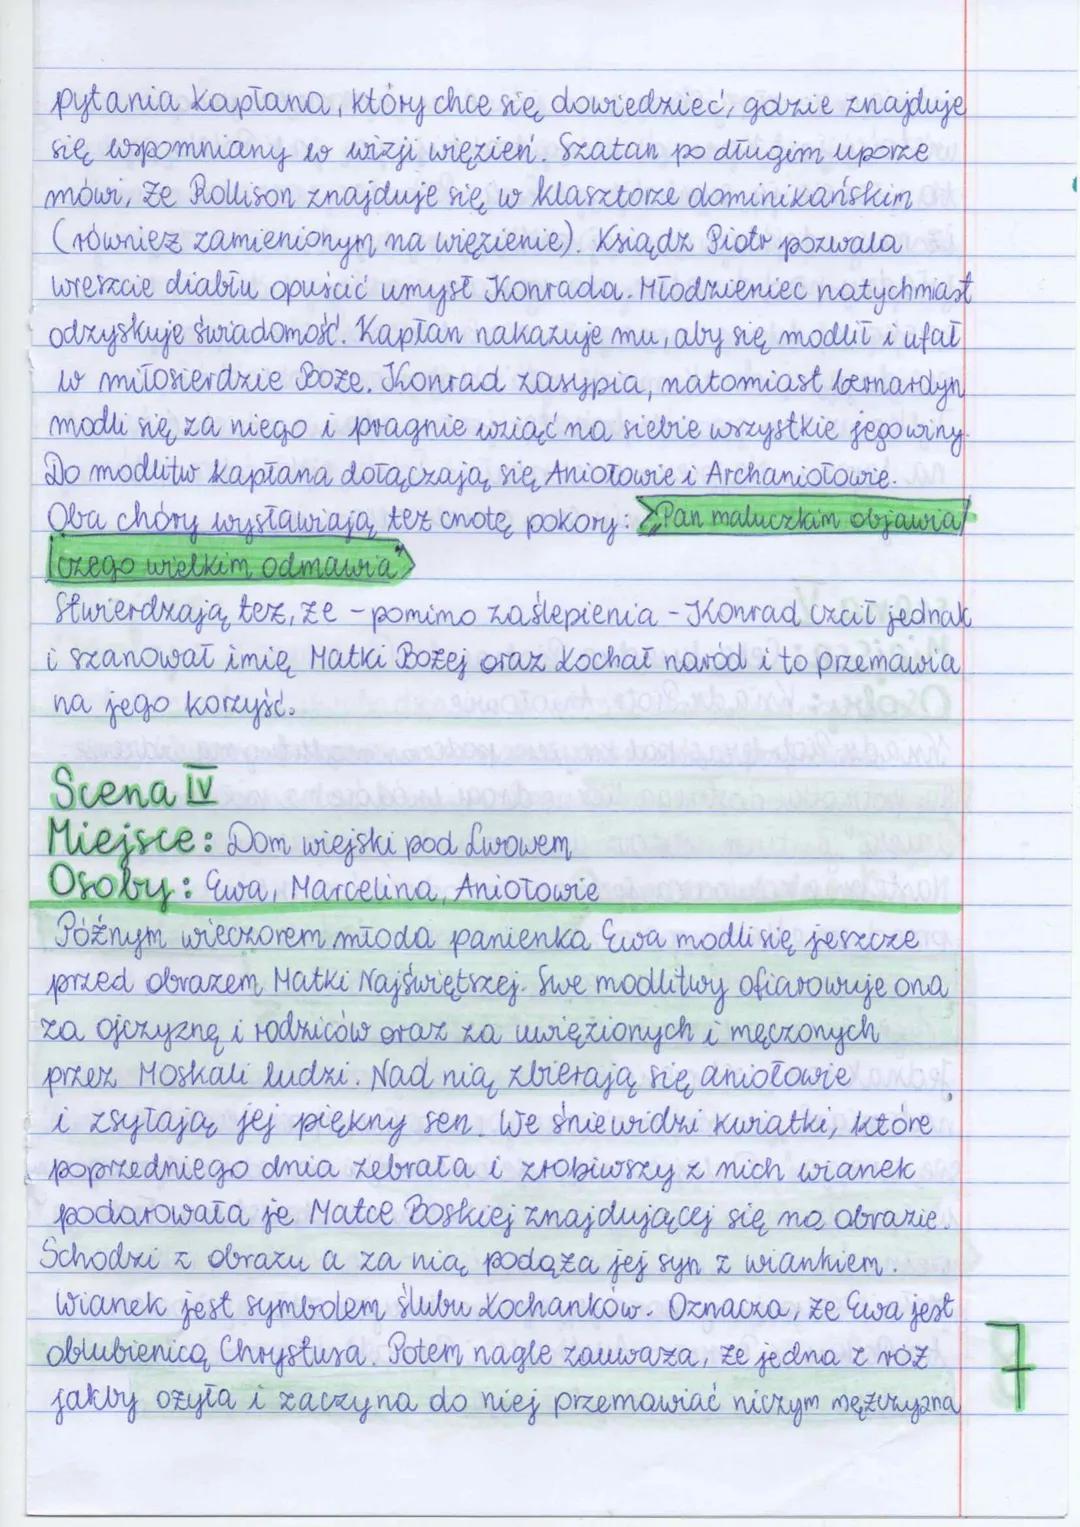 pytania kapłana, który chce się dowiedzieć, gdzie znajduje
się wspomniany w wizji więzień. Szatan po długim uporze
mówi, że Rollison znajduje się w klasztorze dominikańskim
(również zamienionym na więzienie). Ksiądz Piotr pozwala
wreszcie diabłu opuścić umysł Konrada. Młodzieniec natychmiast
odzyskuje świadomość. Kapłan nakazuje mu, aby się modlił i ufał
w miłosierdzie Boże. Konrad zasypia, natomiast bernardyn
modli się za niego i pragnie wziąć na siebie wszystkie jego winy.
Do modlitw kapłana dołączają się Aniołowie i Archaniołowie.
Oba chóry wysławiają też cnotę pokory: „Pan maluczkim objawia/
czego wielkim odmawia"
Stwierdzają też, że - pomimo zaślepienia - Konrad czcił jednak
i szanował imię Matki Bożej oraz kochał naród i to przemawia
na jego korzyść.
Scena IV
Miejsce: Dom wiejski pod Lwowem
Osoby: Ewa, Marcelina, Aniołowie
Późnym wieczorem młoda panienka Ewa modli się jeszcze
przed obrazem Matki Najświętszej. Swe modlitwy ofiarowuje ona
za ojczyznę i rodziców oraz za uwięzionych i męczonych
przez Moskali ludzi. Nad nią zbierają się aniołowie
i zsyłają jej piękny sen. We śnie widzi kwiatki, które
poprzedniego dnia zebrała i zrobiwszy z nich wianek
podarowała je Matce Boskiej znajdującej się na obrazie.
Schodzi z obrazu a za nią podąża jej syn z wiankiem.
Wianek jest symbolem ślubu kochanków. Oznacza, że Ewa jest
oblubienicą Chrystusa. Potem nagle zauważa, że jedna z róż
jakby ożyła i zaczyna do niej przemawiać niczym mężczyzna
7